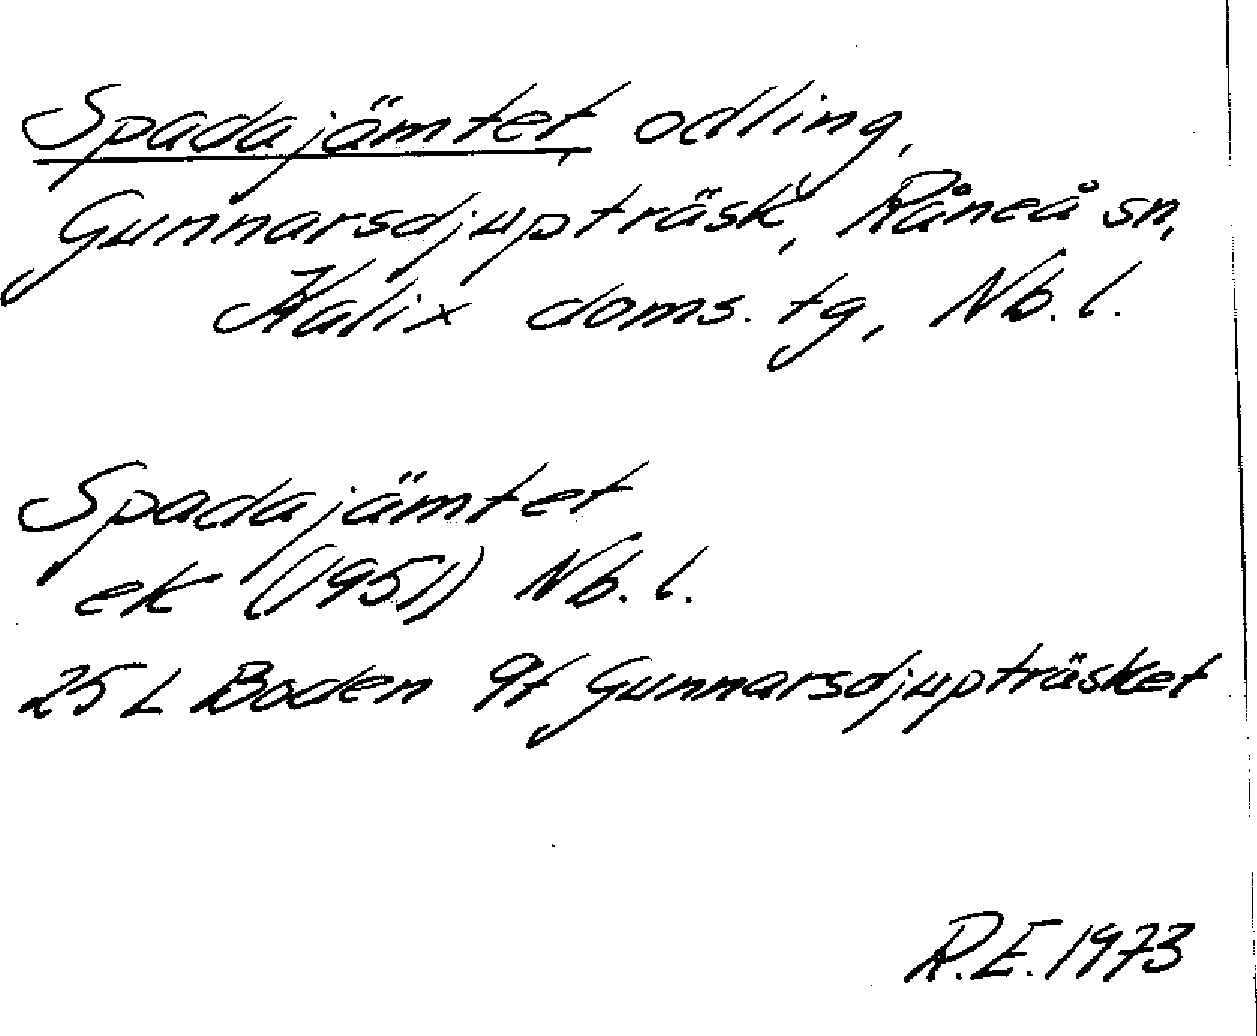 Spadajämtet, odling,
Gunnarsdjupträsk, Råneå sn,
Kalix doms. tg, Nb. l.
Spadajämtet
ek (1951) Nb. l.
25 L Boden 9f Gunnarsdjupträsket
R.E. 1973